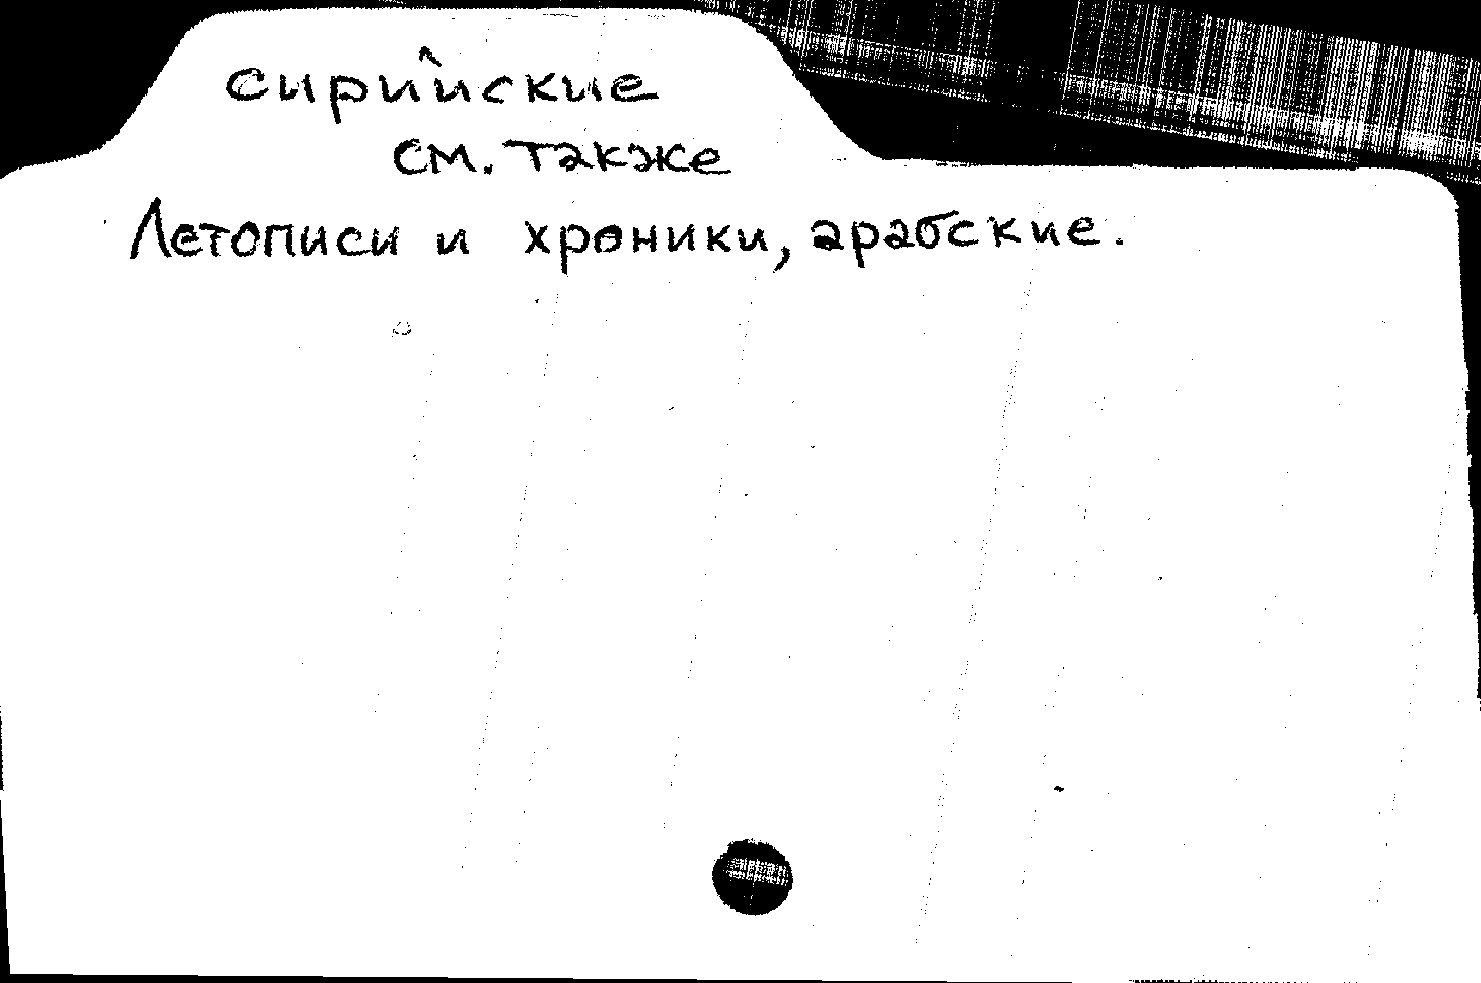 сирийские
см. также
Летописи и хроники, арабские.